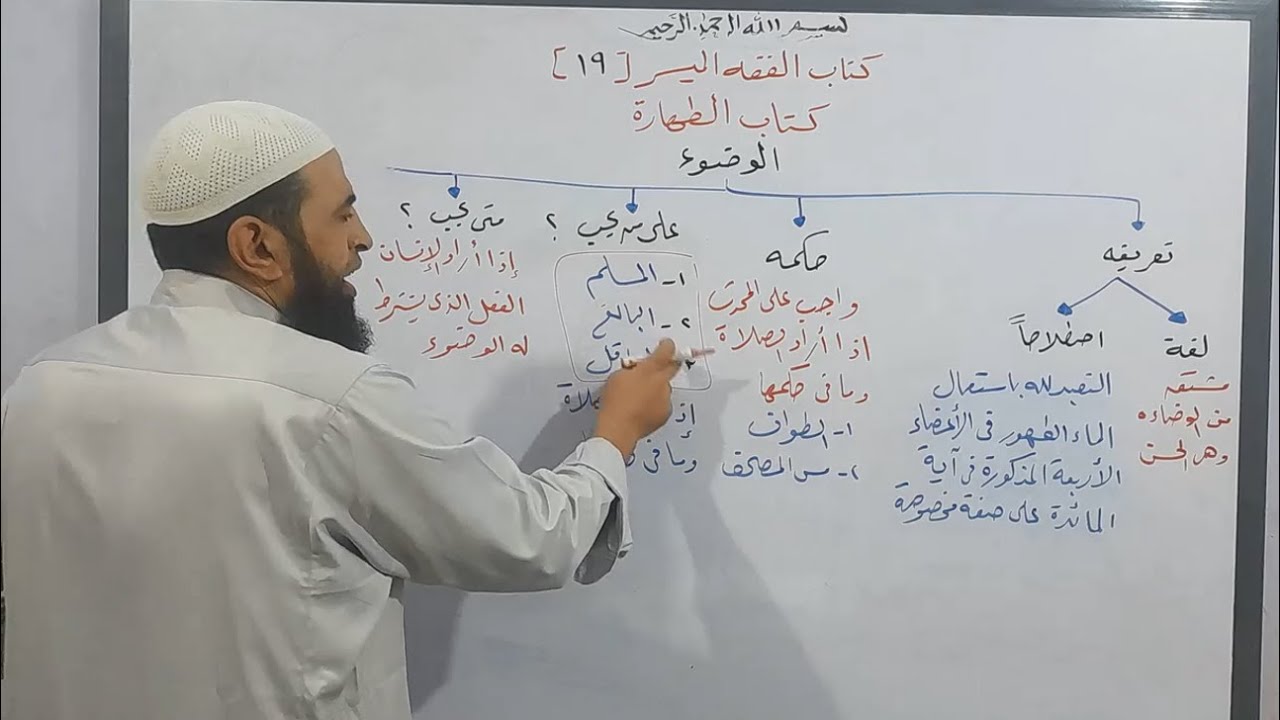 بسم الله الرحمن الرحيم
كتاب الفقه الميسر [١٩]
كتاب الطهارة
الوضوء
تعريفه
لغة
مشتقه
من الوضاءه
وهى الحسن
اصطلاحاً
التعبد لله باستعمال
الماء الطهور فى الأعضاء
الأربعة المذكورة فى آية
المائدة على صفة مخصوصة
حكمه
واجب على المحدث
إذا أراد الصلاة
وما فى حكمها
١- الطواف
٢- مس المصحف
على من يجب ؟
١- المسلم
٢- البالغ
وما فى
متى يجب ؟
إذا أراد الإنسان
الفعل الذى يشترط
له الوضوء